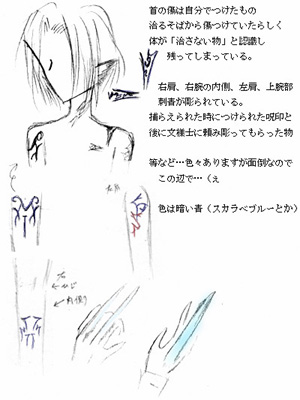 首の傷は自分でつけたもの
治るそばから傷つけていたらしく
体が「治さない物」と認識し
残ってしまっている。
右肩、右腕の内側、左肩、上腕部
刺青が彫られている。
捕らえられた時につけられた呪印と
後に文様士に頼み彫ってもらった物
等など…色々ありますが面倒なので
この辺で…（ぇ
色は暗い青（スカラベブルーとか）